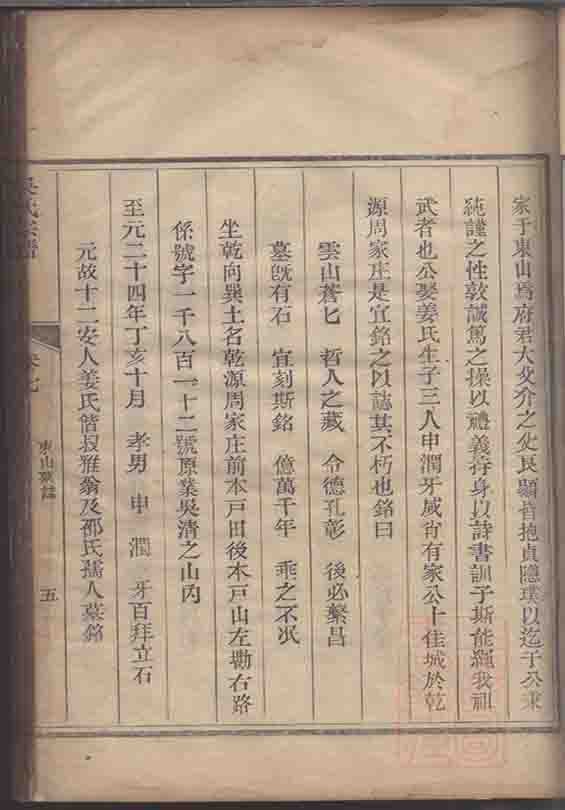 家于東山爲府君大父介之父良顯皆抱貞隱璞以迄于公秉
純謹之性敦誠篤之操以禮義持身以詩書訓子斯能繩我祖
武者也公娶姜氏生子三人申潤牙咸肯有家公卜佳城於乾
源周家庄是宜銘之以誌其不朽也銘曰
雲山蒼匕 哲人之藏 令德孔彰 後必繁昌
墓旣有石 宜刻斯銘 億萬千年 乖之不泯
坐乾向巽土名乾源周家庄前本戸田後本戸山左塝右路
係號字一千八百一十二號原業吳清之山內
至元二十四年丁亥十月 孝男 申 潤 牙百拜立石
元故十二安人姜氏偕叔雅翁及邵氏孺人墓銘
吳氏宗譜
卷七
東山墓誌
五